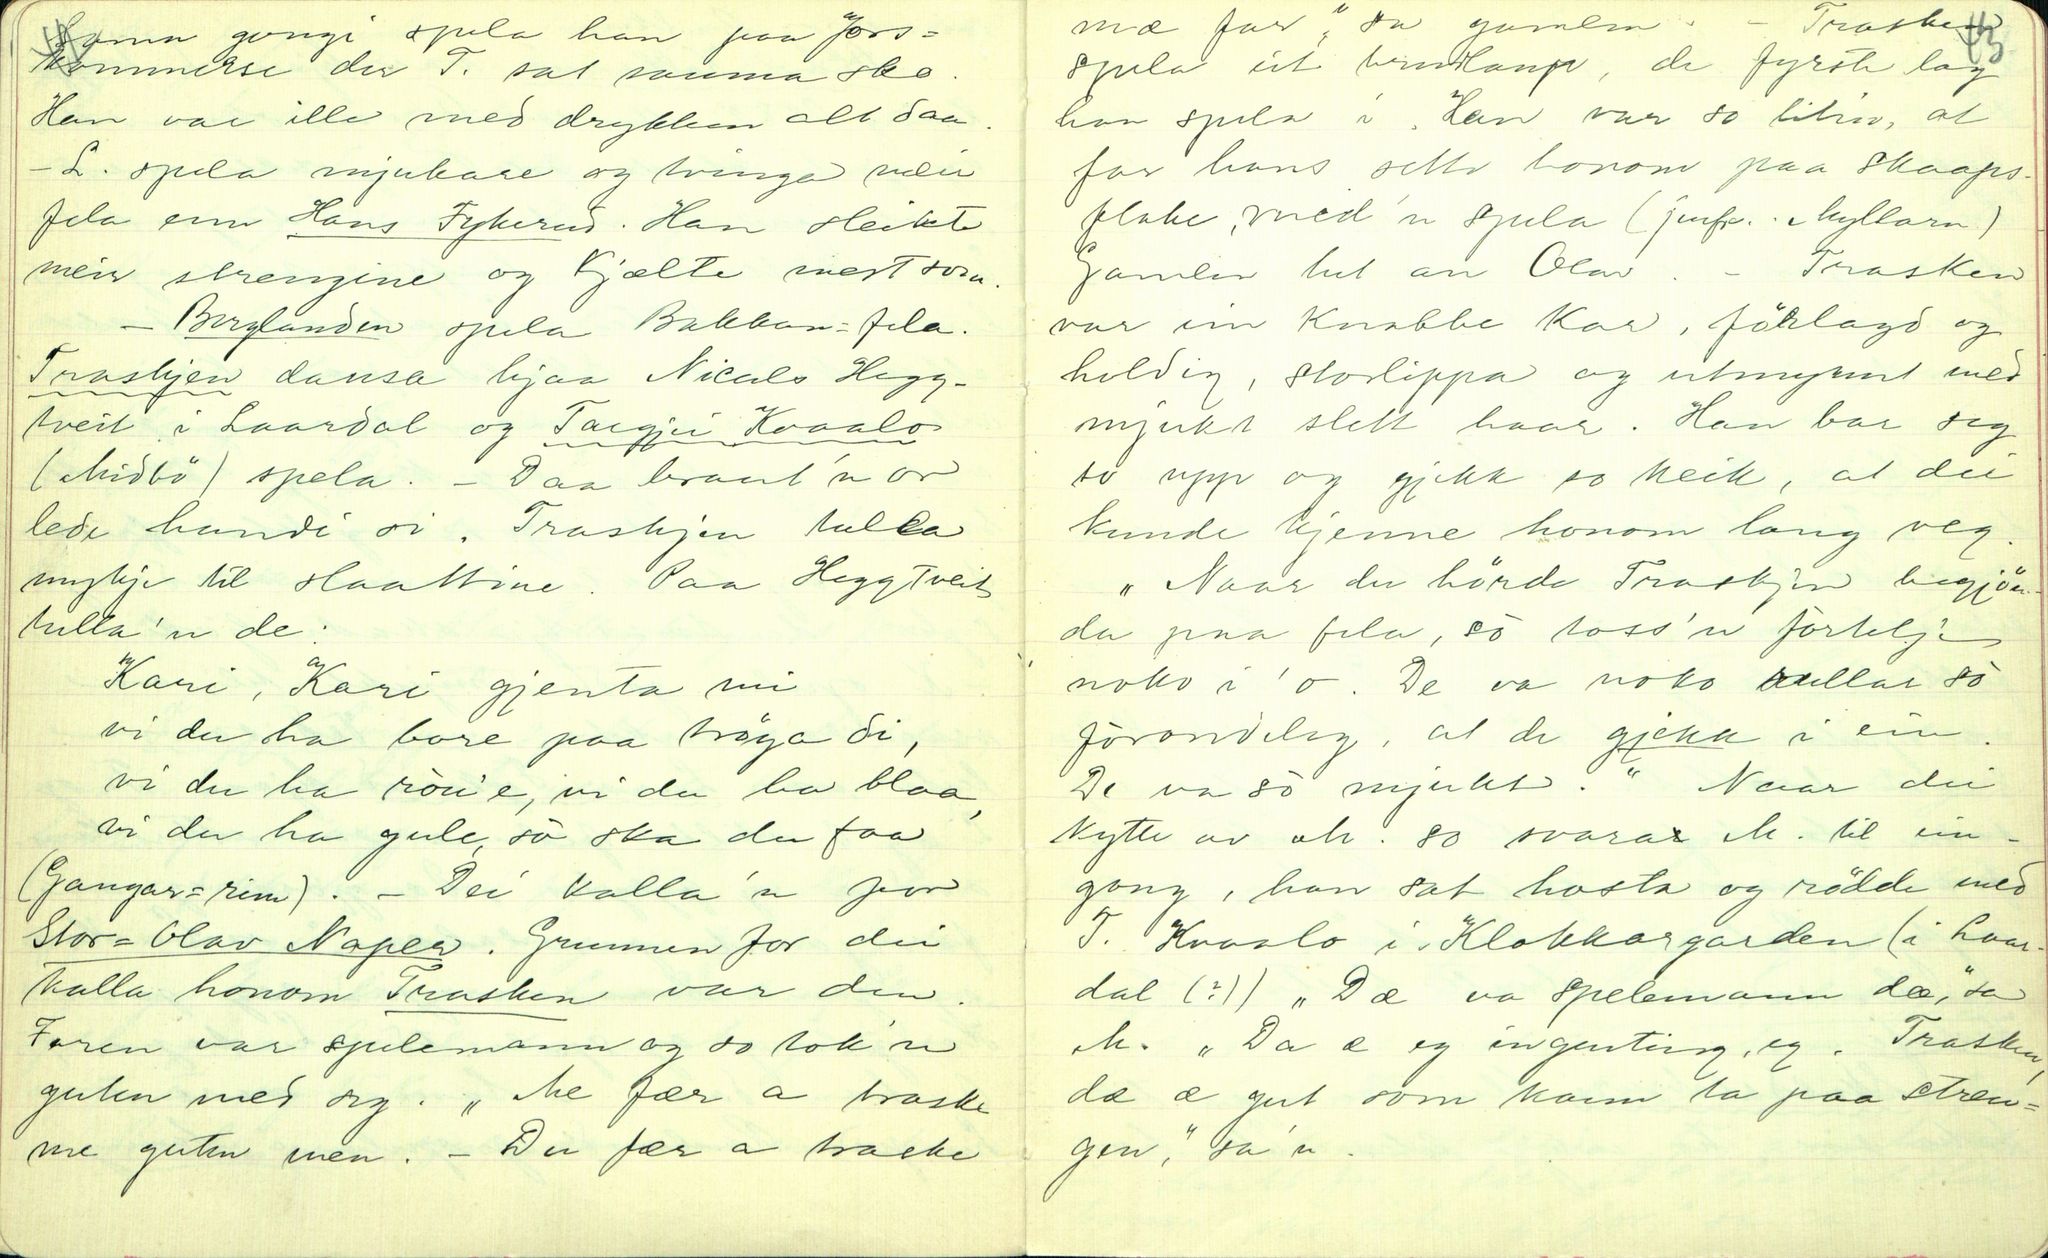 Sama gongi spela han paa Jors=
kommerse der T. sat sauma sko.
Han var ille med drykken alt daa.
- L. spela mjukare og tvinga meir
fela enn Hans Fykerud. Han sleikte
meir strengine og kjælte mest som.
- Berglanden spela Bakkan=fela.
Traskjen dansa hjaa Nicals Hegg-
tveit i Laardal og Targjei Kvaalo
(Midbö) spela. - Daa braut'n or
lede handi si. Traskjen tulla
mykje til slaattine. Paa Heggtveit
tulla'n de:
Kari, Kari gjenta mi
vi du ha bore paa tröya di,
vi du ha röu'e, vi du ha blaa,
vi du ha gule, sò ska du faa
(Gangar=rim). - Dei kalla'n for
Stor=Olav Naper. Grunnen for dei
kalla honom Trasken var den.
Faren var spelemann og so tok'n
guten med seg. „Me fær a traske
me guten men. - Du fær a traske
43
mæ far," sa gamlen. - Trasken
spela ut brudlaup, de fyrste lag
han spela i. Han var so liten, at
far hans sette honom paa skaaps-
flake, med'n spela (jmfr. Myllarn)
Gamlen het an Olav. - Trasken
var ein knabbe kar, förlagd og
holdig, storlippa og utmynnt med
mjukt slett haar. Han bar seg
so upp og gjekk so keik, at dei
kunde kjenne honom lang veg.
„Naar du hörde Traskjen begjön-
da paa fela, sò toss'n fòrtelje
noko i 'o. De va noko rullar sò
fòrandeleg, at de gjekk i ein.
De va sò mjukt." Naar dei
kytte av M. so svarar M. til ein-
gong, han sat hosta og rödde med
T. Kvaalo i Klokkargarden (i Laar-
dal (?)) „Dæ va spelemann dæ," sa
M. „Da æ eg ingenting, eg. Trasken,
dæ æ gut som kann ta paa stren=
gen," sa'n.